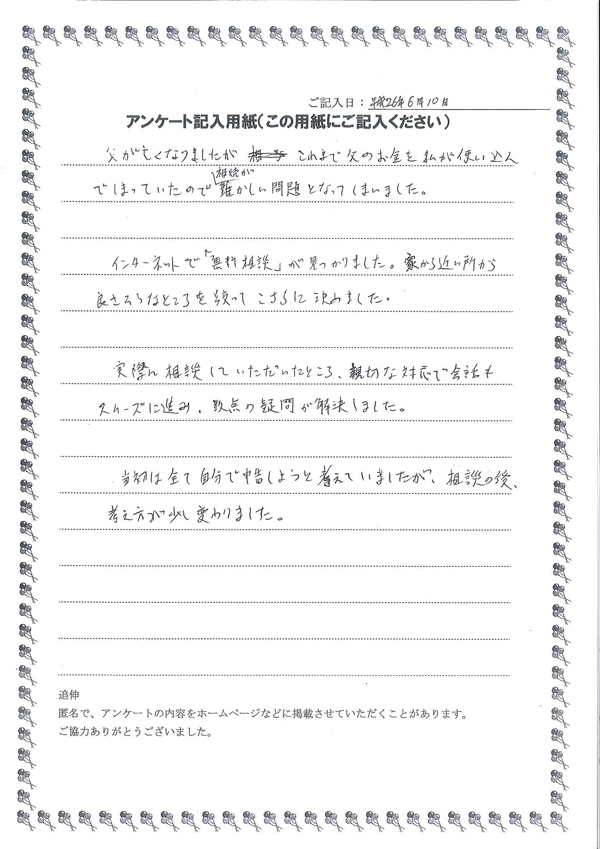 ご記入日：平成26年6月10日
アンケート記入用紙（この用紙にご記入ください）
父が亡くなりましたが これまで父のお金を私が使い込ん
相続が
でしまっていたので難かしい問題となってしまいました。
インターネットで「無料相談」が見つかりました。家から近い所から
良さそうなところを絞ってこちらに決めました。
実際に相談していただいたところ、親切な対応で会話も
スムーズに進み、数点の疑問が解決しました。
当初は全て自分で申告しようと考えていましたが、相談の後、
考え方が少し変わりました。
追伸
匿名で、アンケートの内容をホームページなどに掲載させていただくことがあります。
ご協力ありがとうございました。